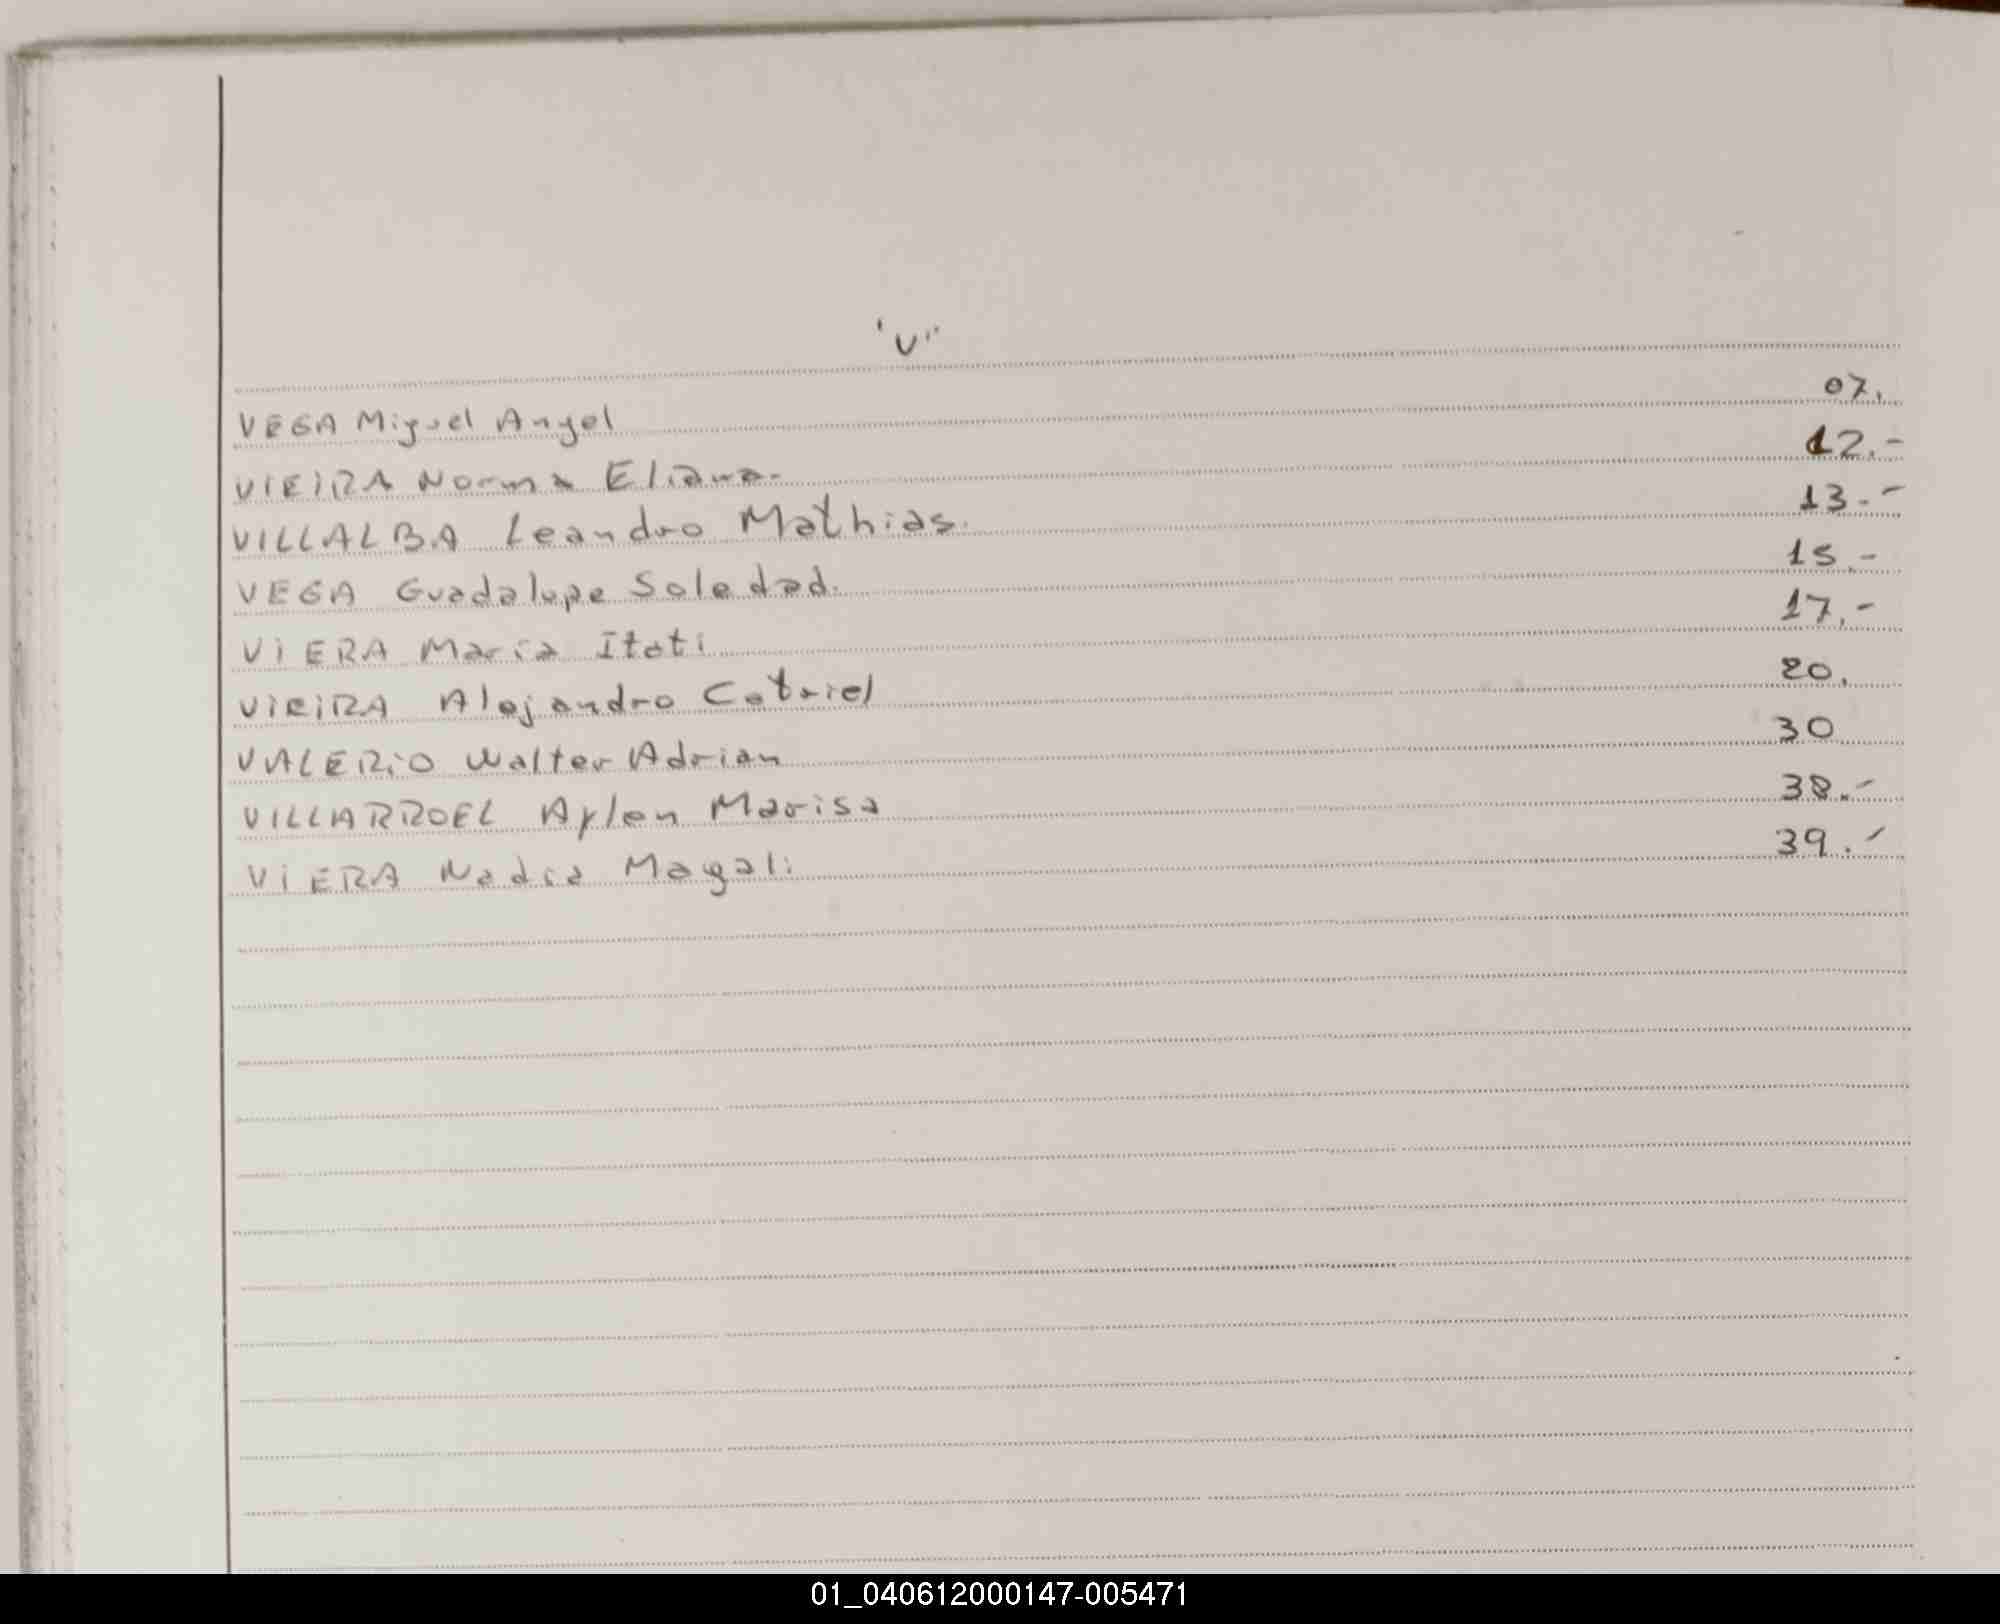 "V"
VEGA Miguel Angel 07.
VIEIRA Norma Eliana.- 12.-
VILLALBA Leandro Mathias. 13.-
VEGA Guadalupe Soledad. 15.-
ViERA Maria Itati 17.-
VIEIRA Alejandro Catriel 20.
VALERiO Walter Adrian 30
VILLARROEL Aylen Marisa 38.-
ViERA Nadia Magali 39.-
01_040612000147-005471